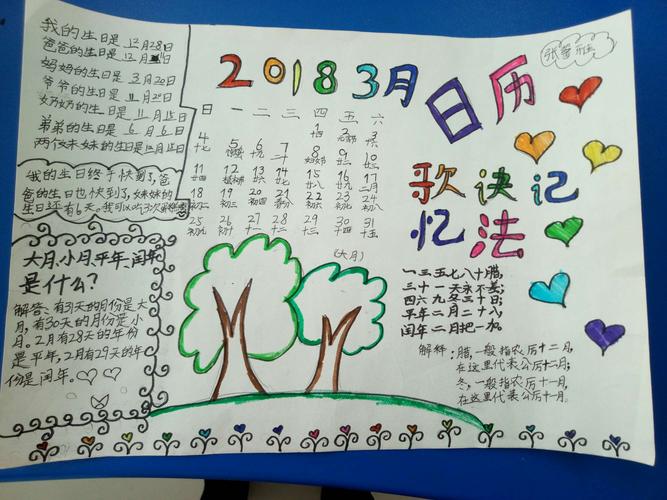 我的生日是12月28日
爸爸的生日是12月日
妈妈的生日是3月20日
爷爷的生日是11月20日
奶奶的生日是11月15日
弟弟的生日是6月6日
两个妹妹的生日是12月15日
我的生日终于快到了,爸
爸的生日也快到了,妹妹的
生日还有6天,我可以吃3次蛋糕
大月、小月、平年、闰年
是什么?
解答:有31天的月份是大
月,有30天的月份是小
月。2月有28天的年份
是平年,2月有29天的年
份是闰年。
2018 3月
日 一 二 三 四 五 六
1 2 3
十四 元宵节 十六
4 5 6 7 8 9 10
十七 十九 二十 妇女节 廿二 廿三
11 12 13 14 15 16 17
廿四 植树节 廿六 廿七 廿八 廿九 二月
18 19 20 21 22 23 24
初二 初三 初四 春分 初六 初七 初八
25 26 27 28 29 30 31
初九 初十 十一 十二 十三 十四 十五
(大月)
日历
歌诀记
忆法
一三五七八十腊,
三十一天永不差;
四六九冬三十日;
平年二月二十八,
闰年二月把一加。
解释:腊,一般指农历十二月,
在这里代表公历十二月;
冬,一般指农历十一月,
在这里代表公历十一月。